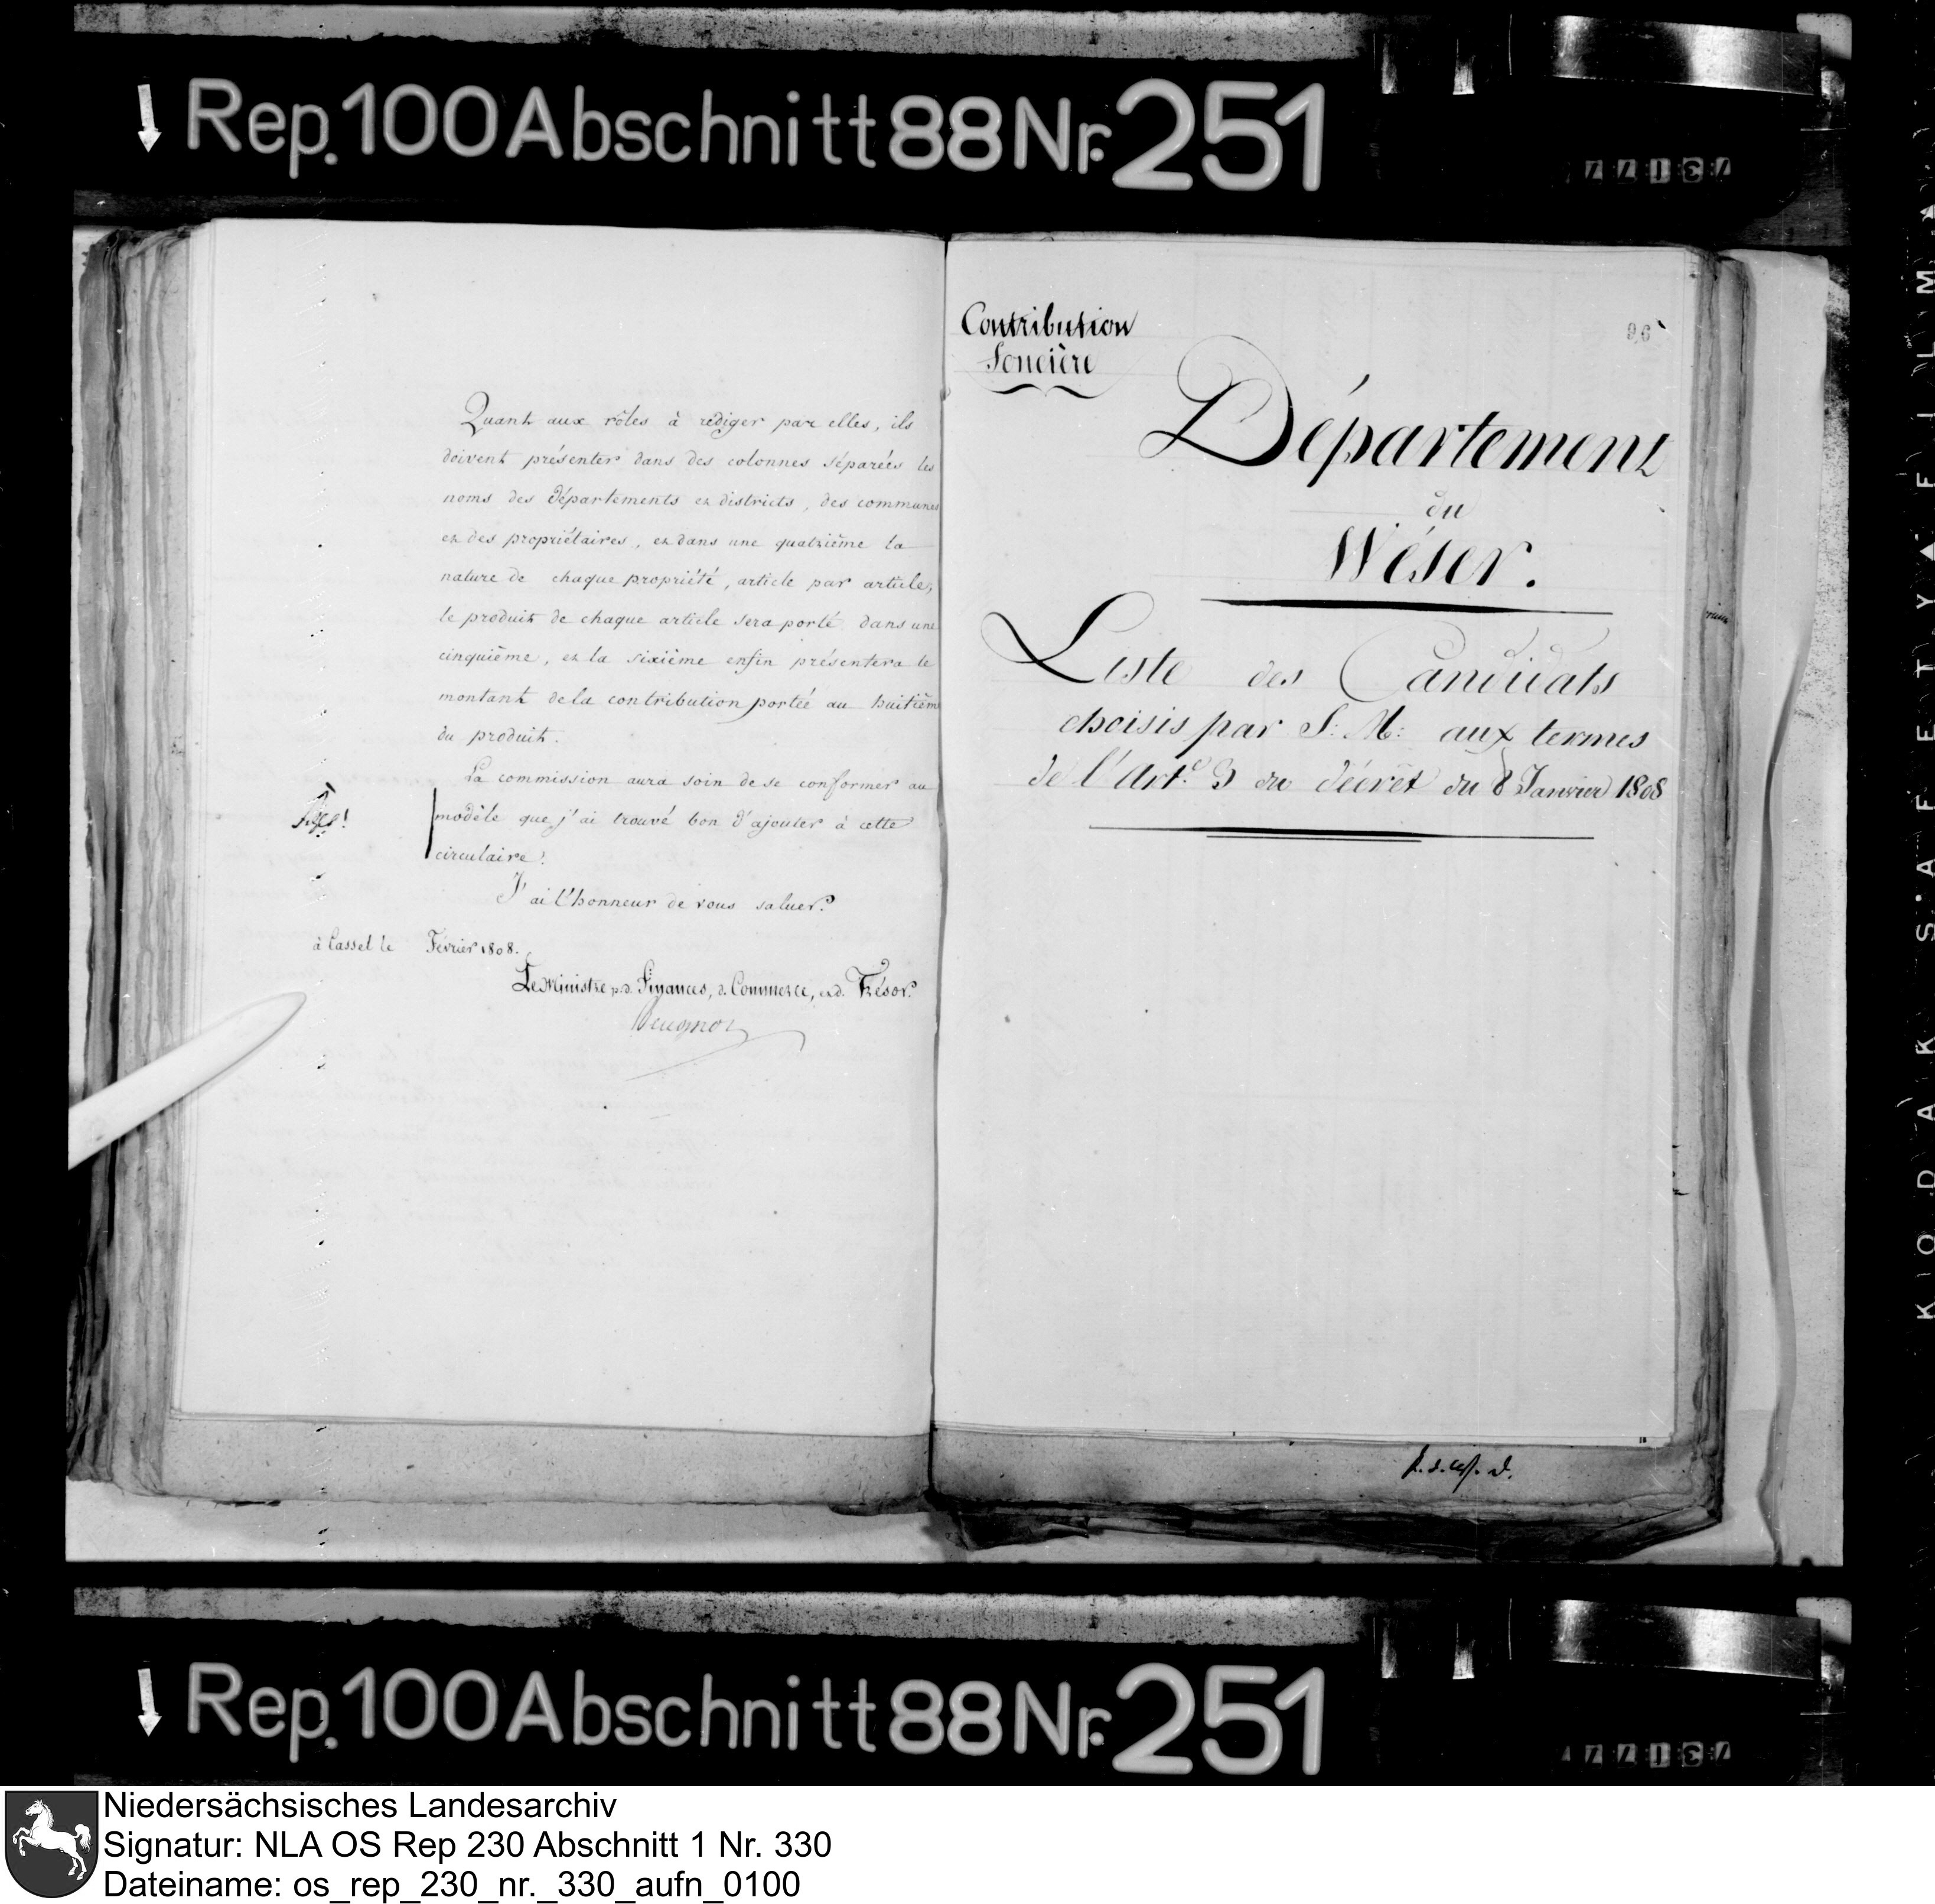 Rep. 100 Abschnitt 88 Nr. 251
Quant aux rôles à rédiger par elles, ils
doivent présenter dans des colonnes séparées les
noms des départements et districts, des communes
et des propriétaires, et dans une quatrième la
nature de chaque propriété, article par article;
le produit de chaque article sera porté dans une
cinquième, et la sixième enfin présentera le
montant de la contribution portée au huitième
du produit.
La commission aura soin de se conformer au
modèle que j'ai trouvé bon d'ajouter à cette
circulaire.
J'ai l'honneur de vous saluer.
à Cassel le Février 1808.
Le Ministre p. d. Finances, d. Commerce, et d. Trésor.
Beugnot
Contribution
foncière
96
Département
du
Wéser.
Liste des Candidats
choisis par S. M. aux termes
de l'Art.e 3 du décrêt du 8 Janvier 1808
Rep. 100 Abschnitt 88 Nr. 251
KODAK SAFETY FILM
Niedersächsisches Landesarchiv
Signatur: NLA OS Rep 230 Abschnitt 1 Nr. 330
Dateiname: os_rep_230_nr._330_aufn_0100